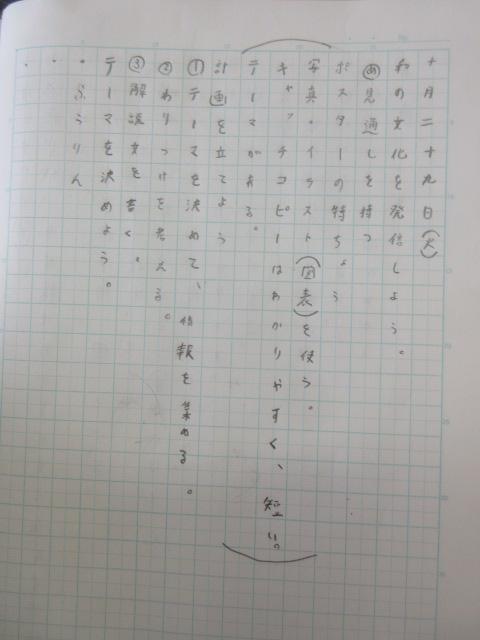 十月二十九日(火)
和の文化を発信しよう。
め見通しを持つ
ポスターの特ちょう
写真・イラスト(図表)を使う。
キャッチコピーはわかりやすく、短い。
テーマがある
計画を立てよう
①テーマを決めて、情報を集める。
②わりつけを考える。
③解説文を書く。
テーマを決めよう。
・ふうりん
・
・